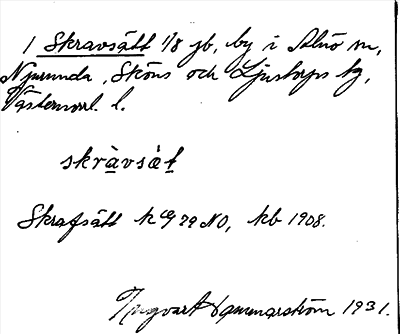 1 Skravsätt 1/8 jb, by i Alnö sn,
Njurunda, Sköns och Ljustorps tg,
Västernorrl. l.
skràvsæ̀t
Skrafsätt k G 29 NO, kb 1908.
Ingvart Hammarström 1931.